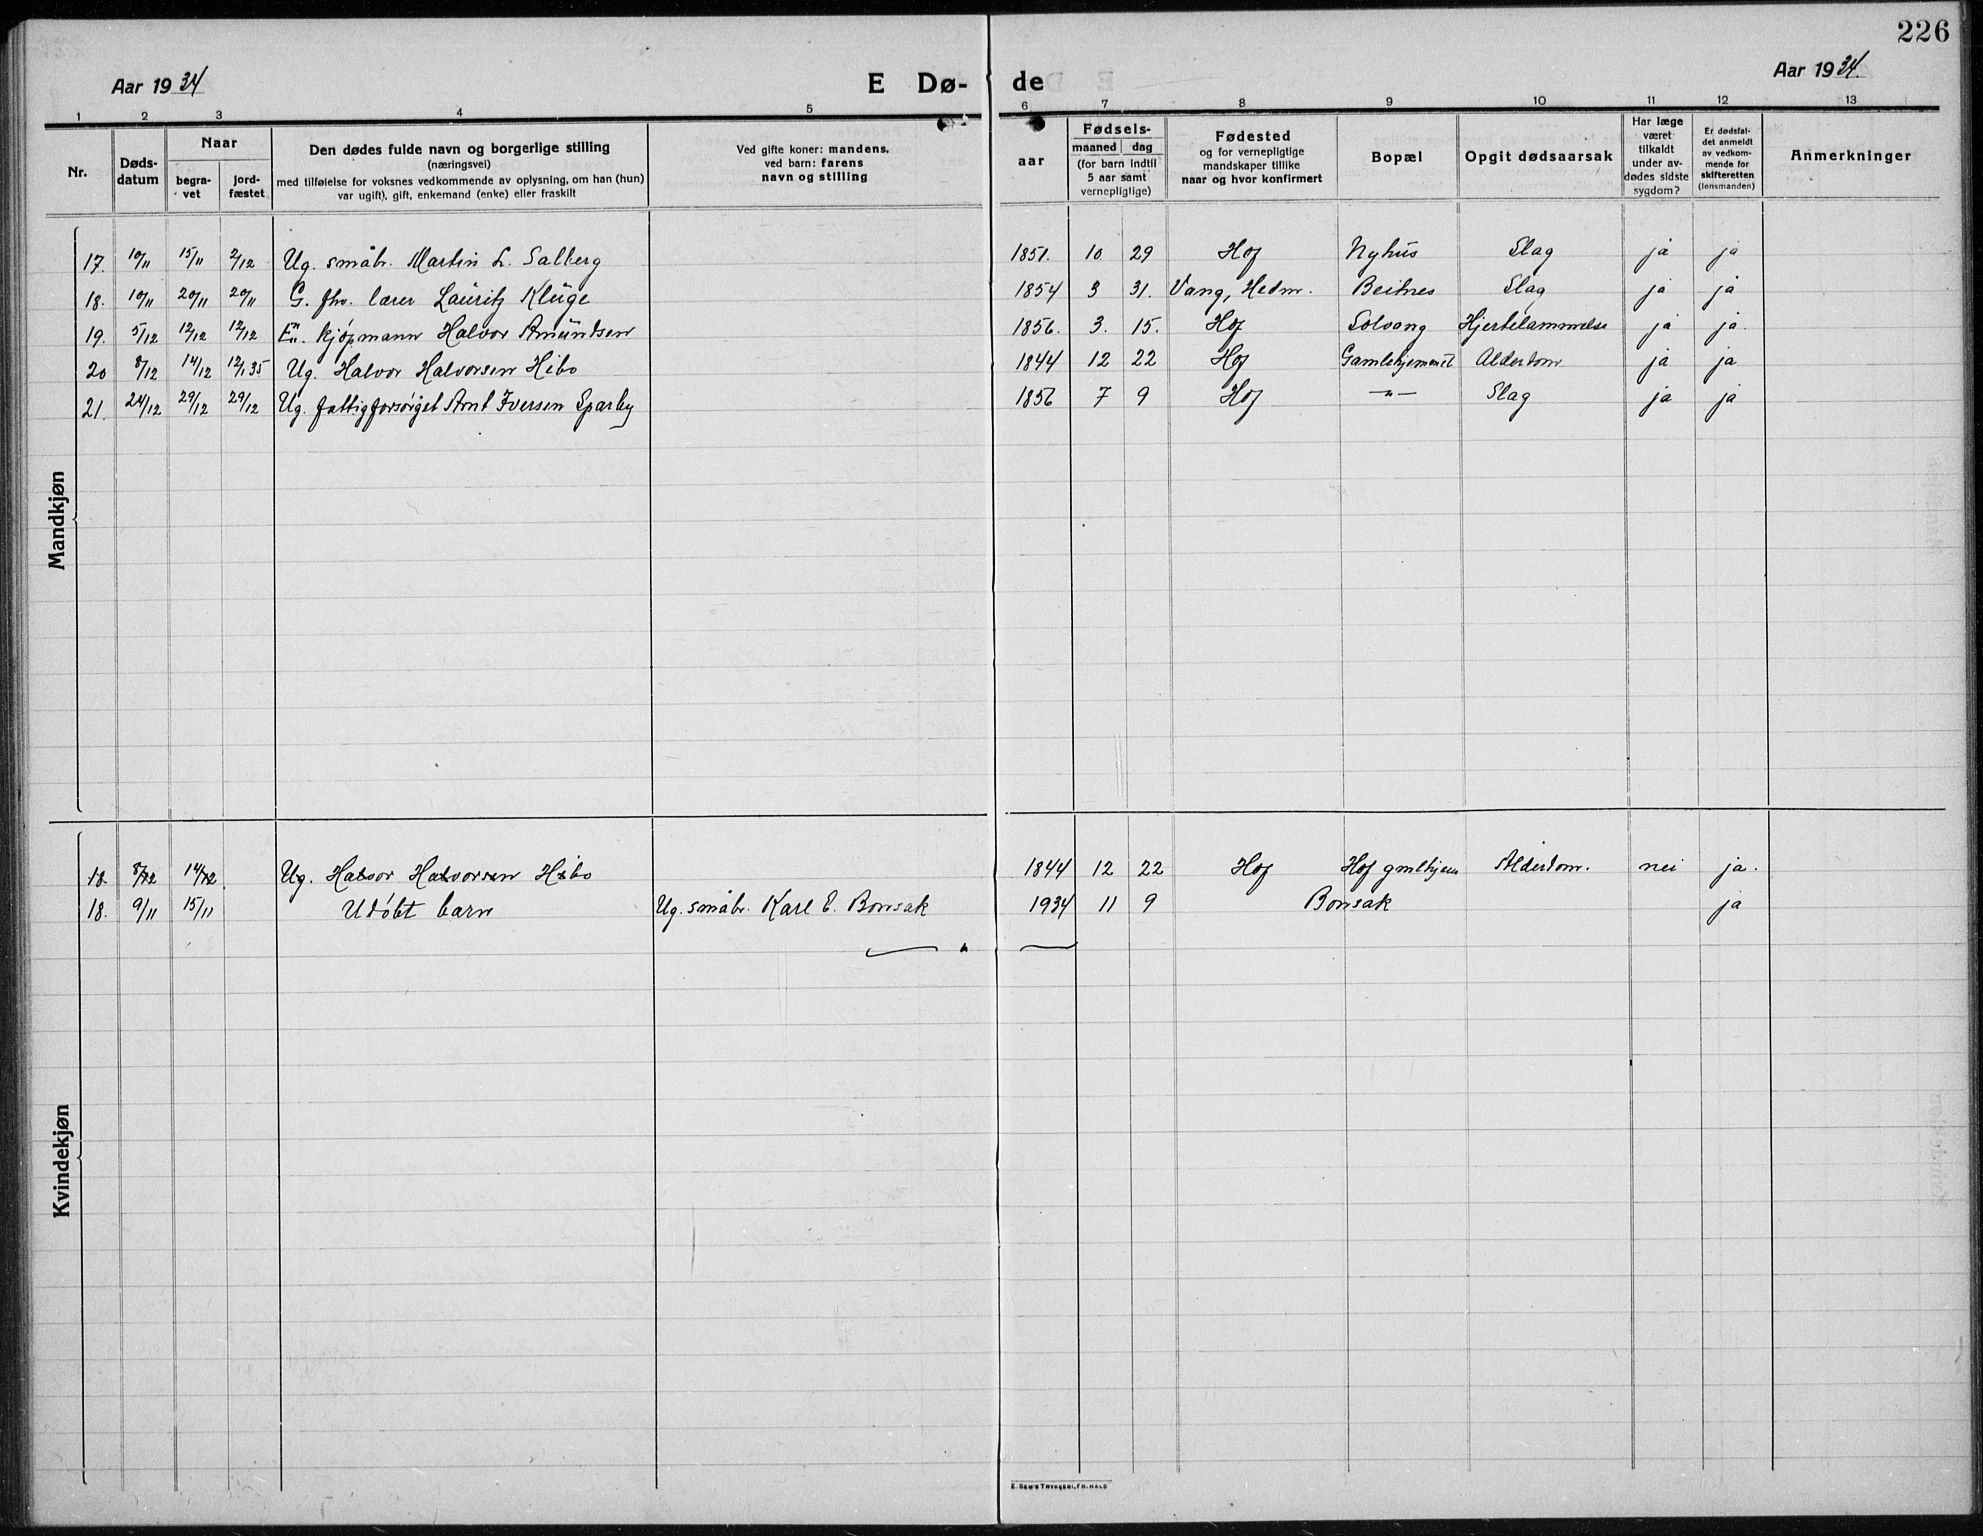 226
Aar 1934 E Dø- de Aar 1934.
1 2 3 4 5 6 7 8 9 10 11 12 13
Nr.
Døds-
datum
Naar
begra-
vet
jord-
fæstet
Den dødes fulde navn og borgerlige stilling
(næringsvei)
med tilføielse for voksnes vedkommende av oplysning, om han (hun)
var ugift), gift, enkemand (enke) eller fraskilt
Ved gifte koner: mandens,
ved barn: farens
navn og stilling
aar
Fødsels-
maaned dag
(for barn indtil
5 aar samt
vernepligtige)
Fødested
og for vernepligtige
mandskaper tillike
naar og hvor konfirmert
Bopæl
Opgit dødsaarsak
Har læge
været
tilkaldt
under av-
dødes sidste
sygdom?
Er dødsfal-
det anmeldt
av vedkom-
mende for
skifteretten
(lensmanden)
Anmerkninger
Mandkjøn
17. 10/11 15/11 2/12 Ug. småbr. Martin L. Salberg 1851. 10 29 Hof Nyhus Slag ja ja
18. 10/11 20/11 20/11 G. fhv. lærer Lauritz Kluge 1854 3 31. Vang, Hedm. Beitnes Slag ja ja
19. 5/12 12/12 12/12 Em. kjøpmann Halvor Amundsen 1856. 3. 15. Hof Solvang Hjertelammelse ja ja.
20 8/12 14/12 12/1 35 Ug. Halvor Halvorsen Hibo 1844 12 22 Hof Gamlehjemmet Alderdom ja ja
21. 24/12 29/12 29/12 Ug. fattigforsørget Arnt Iversen Sparby 1856 7 9 Hof —"— Slag ja ja
Kvindekjøn
18. 8/12 14/12 Ug. Halvor Halvorsen Hibo 1844 12 22 Hof Hof gmlhjem Alderdom. nei ja.
18. 9/11 15/11 Udøbt barn Ug. småbr. Karl E. Bonsak 1934 11 9 Bonsak ja
E. SEM'S TRYKKERI, FR.HALD